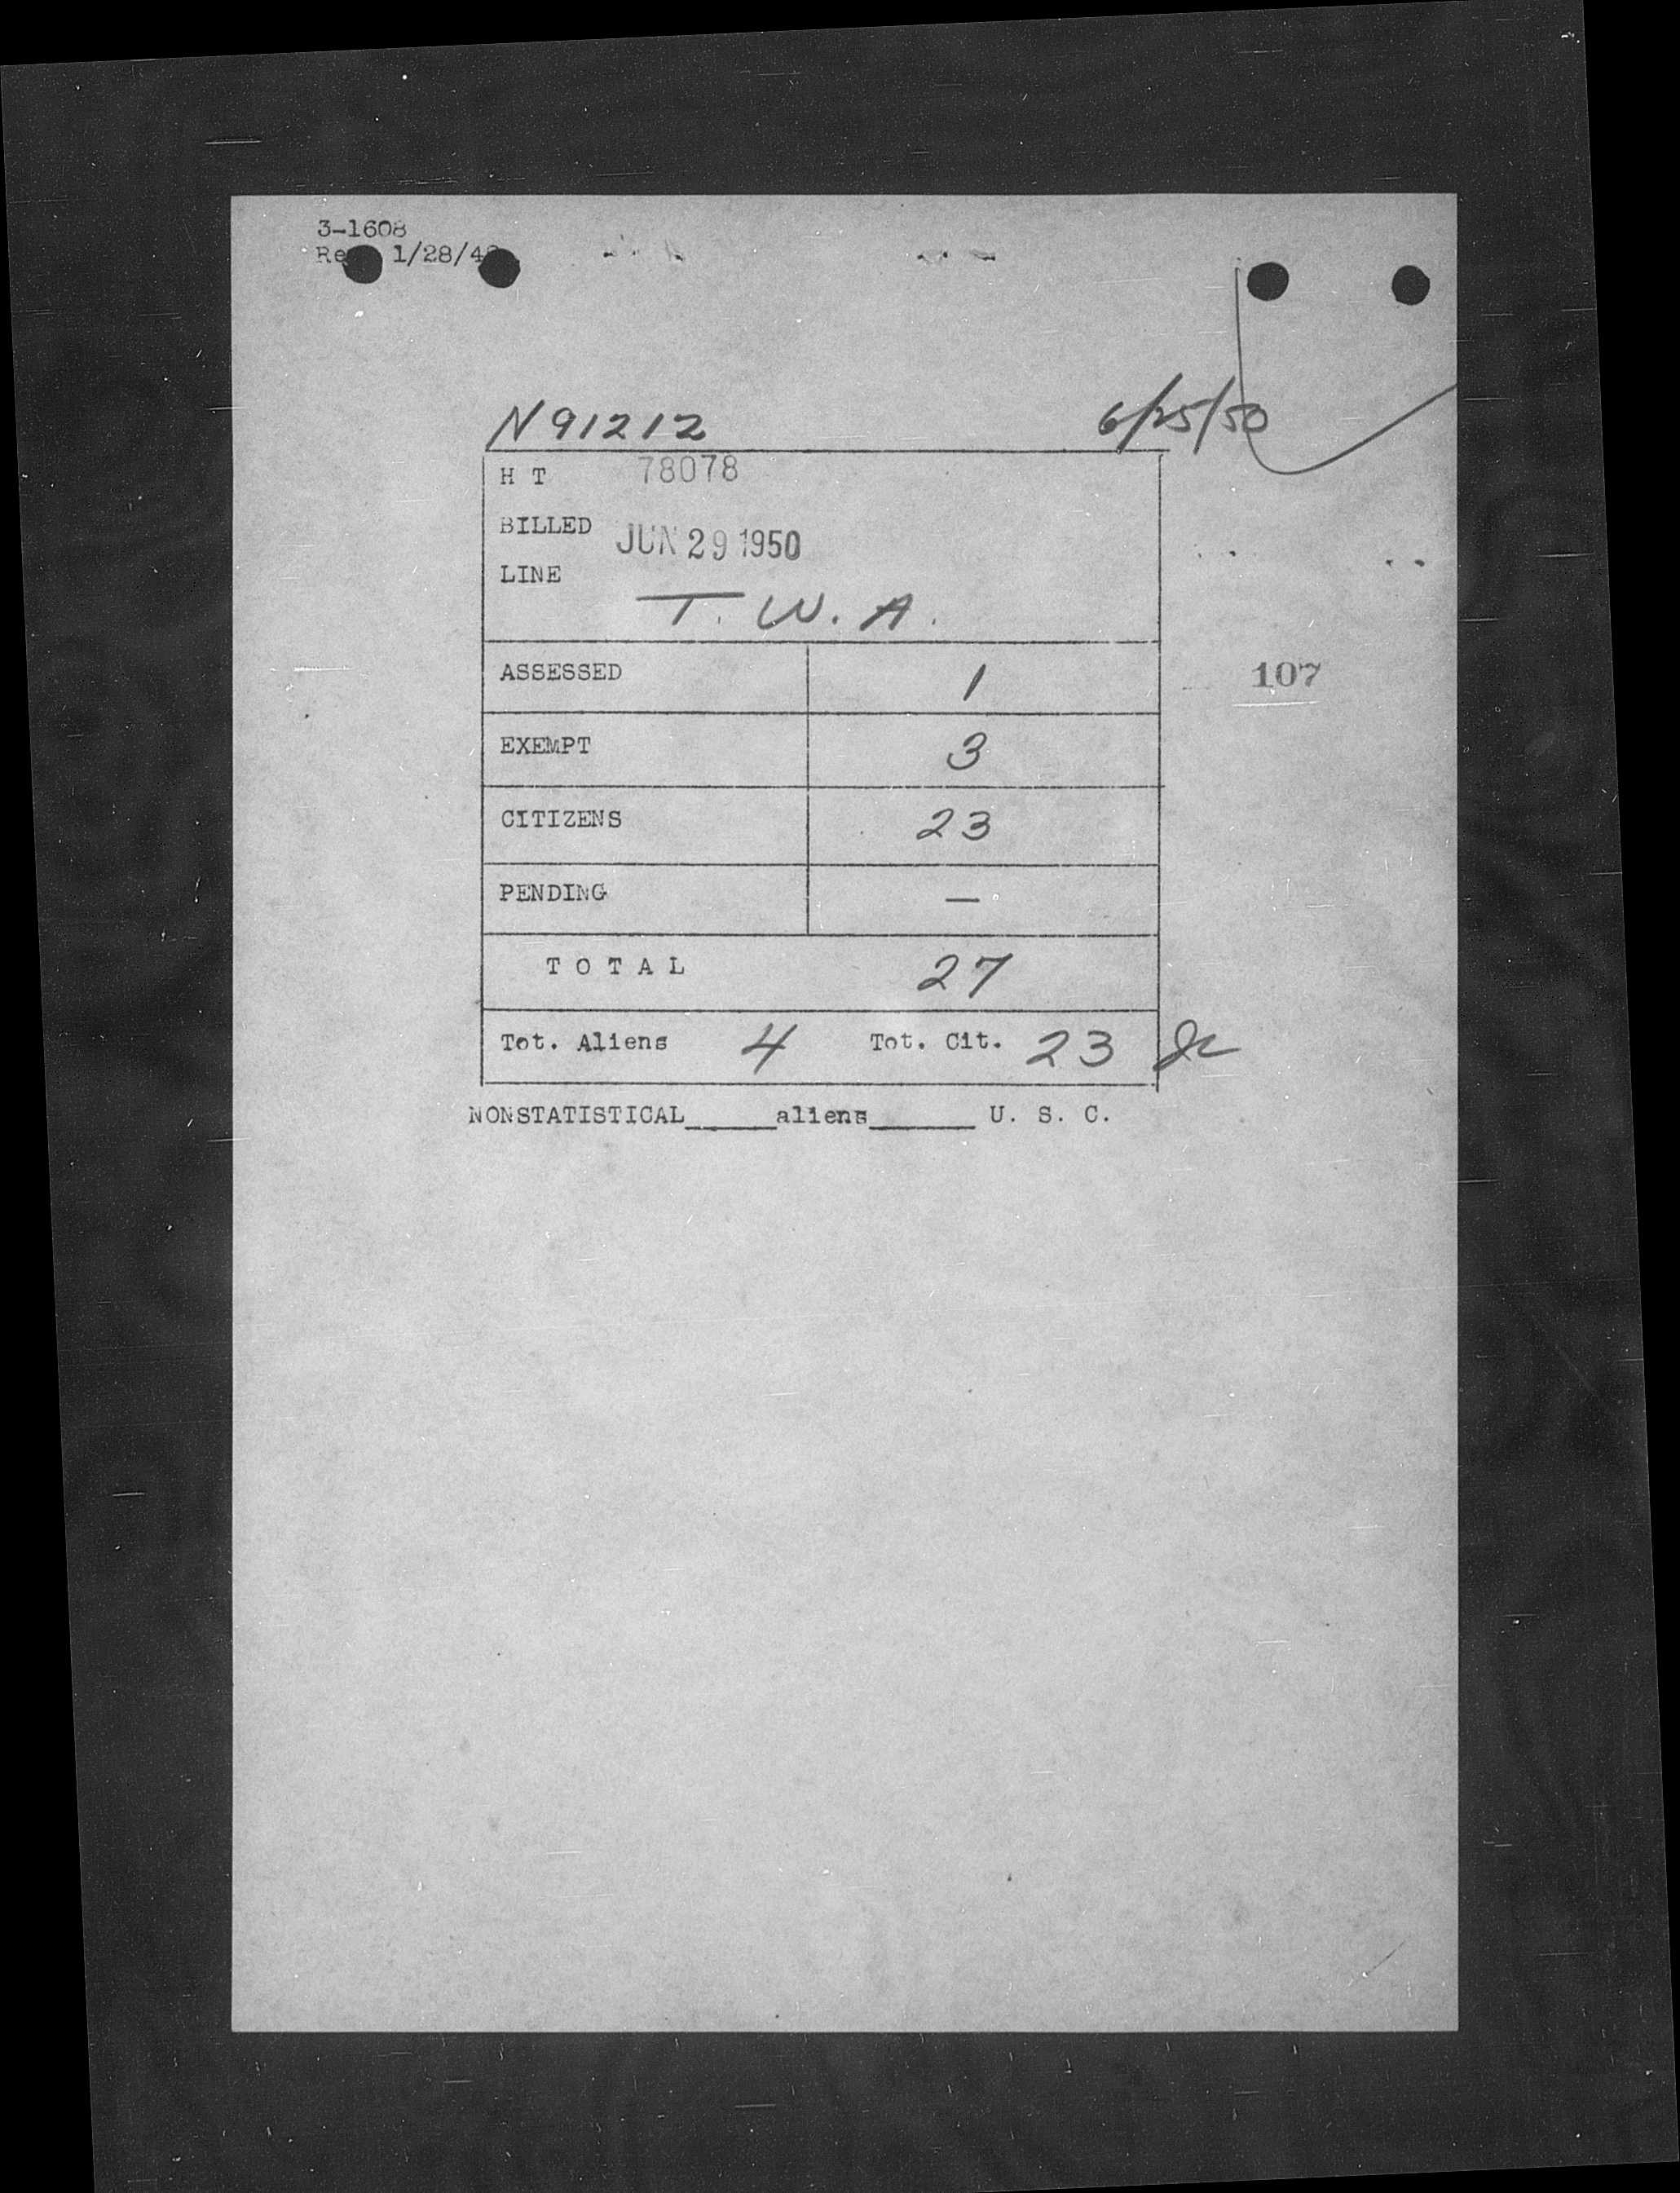 3-1608
1/28/4
N91212 6/25/50
H T 78078
BILLED JUN 29 1950
LINE
T. W. A.
ASSESSED 1
107
EXEMPT 3
CITIZENS 23
PENDING —
T O T A L 27
Tot. Aliens 4 Tot. Cit. 23
NONSTATISTICAL_____aliens______ U. S. C.